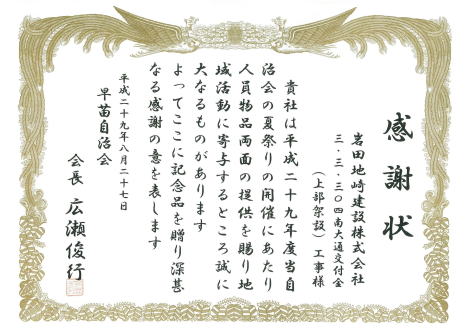 感謝状
岩田地崎建設株式会社
三・三・三〇四南大通交付金
（上部架設）工事様
貴社は平成二十九年度当自
治会の夏祭りの開催にあたり
人員物品両面の提供を賜り地
域活動に寄与するところ誠に
大なるものがあります
よってここに記念品を贈り深甚
なる感謝の意を表します
平成二十九年八月二十七日
早苗自治会
会長 広瀬俊行